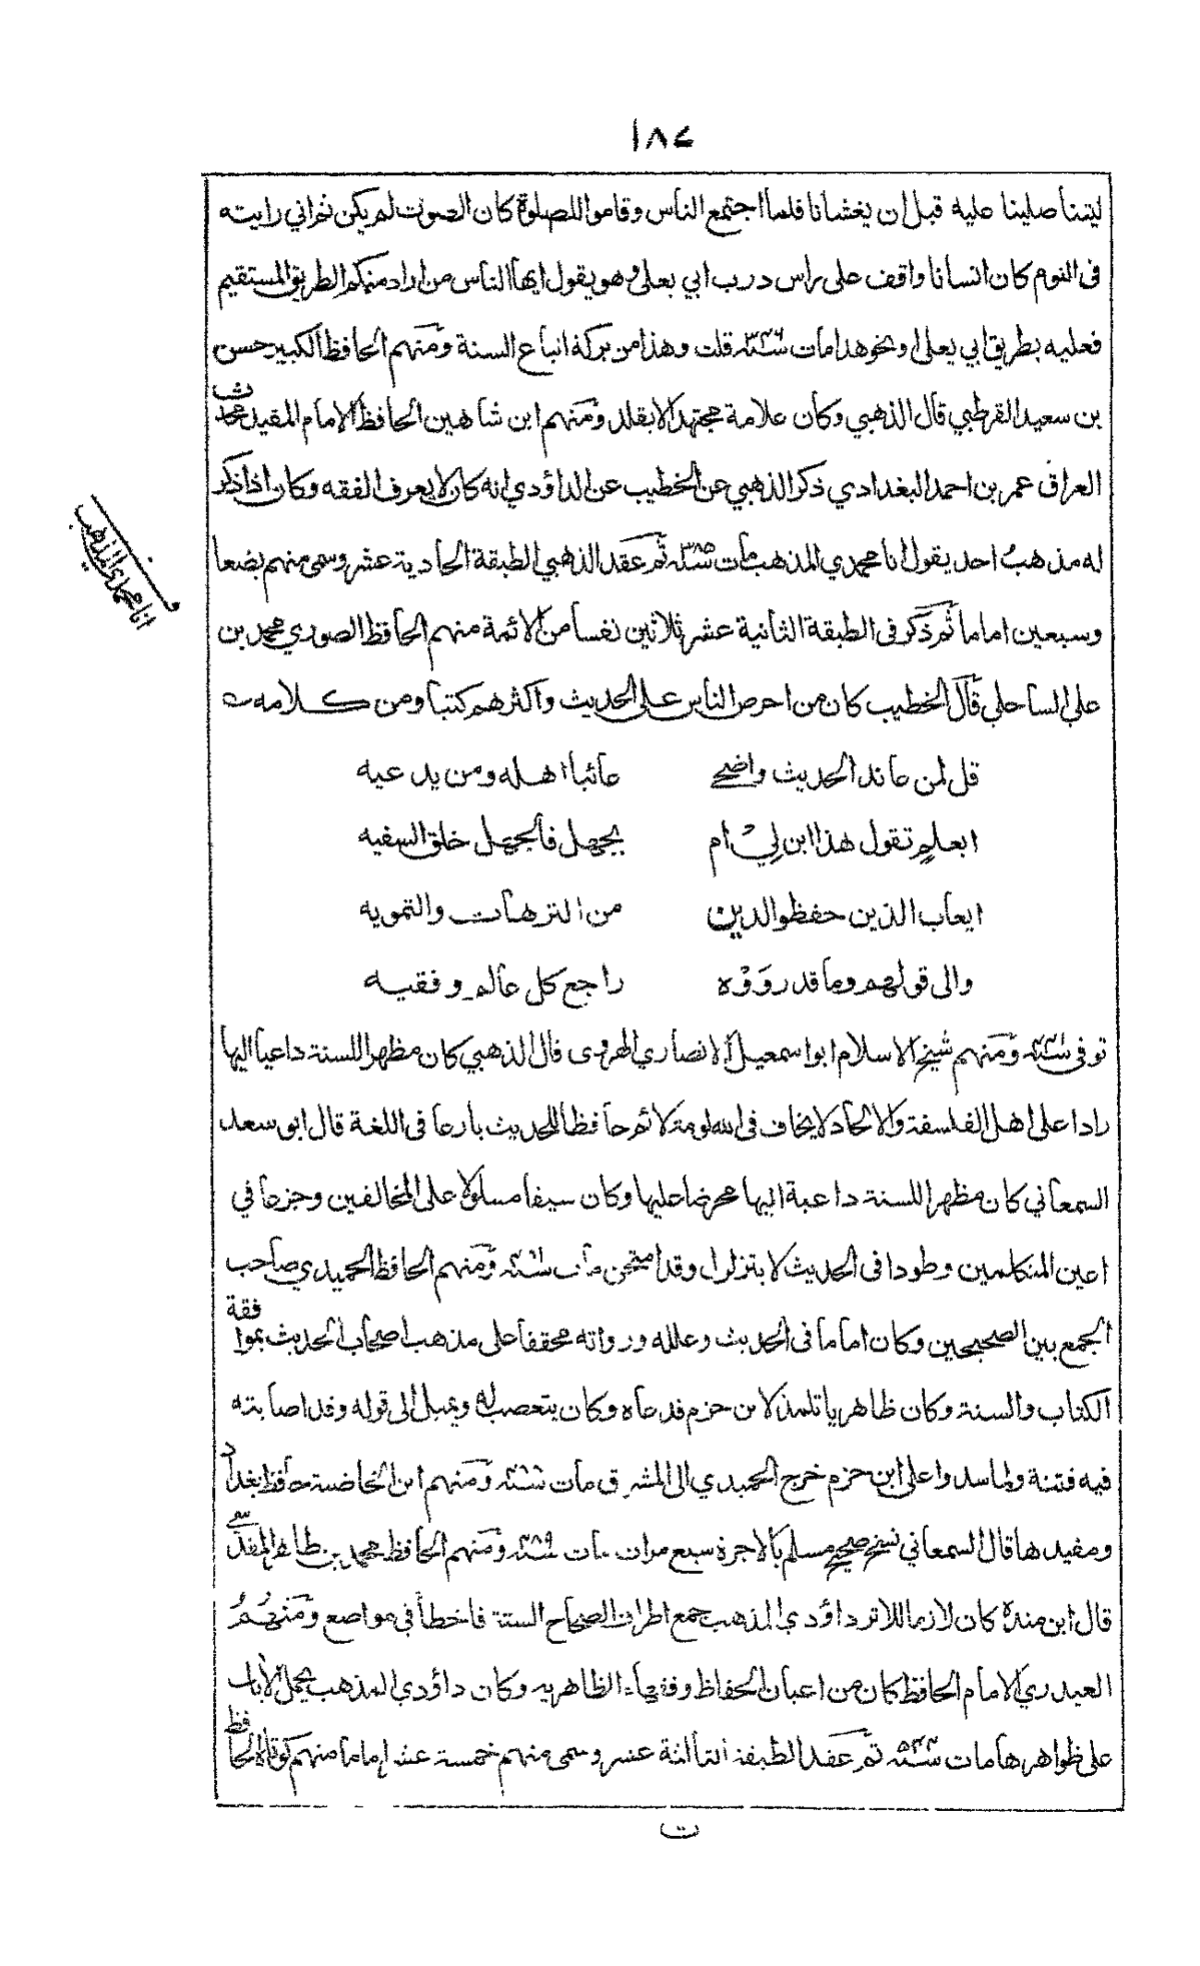 ١٨٤
ليتنا صلينا عليه قبل ان يغشانا فلما اجتمع الناس وقاموا للصلوة كان الصوت لم يكن ثم اني رايته
فى النوم كان انسانا واقف على راس درب ابي يعلى وهو يقول ايها الناس من اراد منكم الطريق المستقيم
فعليه بطريق ابي يعلى او نحو هذا مات سنة ٣٤٦ قلت وهذا من بركة اتباع السنة ومنهم الحافظ الكبير حسن
بن سعيد القرطبي قال الذهبي وكان علامة مجتهدا لا يقلد ومنهم ابن شاهين الحافظ الامام المفيد محدث
العراق عمر بن احمد البغدادي ذكر الذهبي عن الخطيب عن الداؤدي انه كان لا يعرف الفقه وكان اذا ذكر
له مذهب احد يقول انا محمدي المذهب مات سنة ٣٨٥ ثم عقد الذهبي الطبقة الحادية عشر وسمى منهم بضعا
وسبعين اماما ثم ذكر فى الطبقة الثانية عشر ثلاثين نفسا من الائمة منهم الحافظ الصوري محمد بن
على الساحلي قال الخطيب كان من احرص الناس على الحديث واكثرهم كتبا ومن كلامه
قل لمن عاند الحديث واضحى عائبا اهله ومن يدعيه
ابعلم تقول هذا ابن لي ام بجهل فالجهل خلق السفيه
ايعاب الذين حفظو الدين من الترهات والتمويه
والى قولهم وما قد رووه راجع كل عالم وفقيه
توفى سنة ومنهم شيخ الاسلام ابو اسمعيل الانصاري الهروى قال الذهبي كان مظهرا للسنة داعيا اليها
رادا على اهل الفلسفة والالحاد لا يخاف فى الله لومة لائم حافظا للحديث بارعا فى اللغة قال ابو سعد
السمعاني كان مظهرا للسنة داعية اليها محرضا عليها وكان سيفا مسلولا على المخالفين وجزعا في
اعين المتكلمين وطودا فى الحديث لا يتزلزل وقد امتحن مات سنة ومنهم الحافظ الحميدي صاحب
الجمع بين الصحيحين وكان اماما فى الحديث وعلله ورواته محققا على مذهب اصحاب الحديث بموافقة
الكتاب والسنة وكان ظاهريا تلمذ لابن حزم فدعاه وكان يتعصب له ويميل الى قوله وقد اصابته
فيه فتنة ولما سدوا على ابن حزم خرج الحميدي الى المشرق مات سنة ومنهم ابن الخاضبة حافظ بغداد
ومفيدها قال السمعاني نسخ صحيح مسلم بالاجرة سبع مرات مات سنة ٤٨٩ ومنهم الحافظ محمد بن طاهر المقدسي
قال ابن مندة كان لازما للاثر داؤدي المذهب جمع اطراف الصحاح الستة فاخطأ في مواضع ومنهم
العبدري الامام الحافظ كان من اعيان الحفاظ وفقهاء الظاهرية وكان داؤدي المذهب يحمل الآيات
على ظواهرها مات سنة ثم عقد الطبقة الثالثة عشر وسمى منهم خمسة عشر اماما منهم كوتاه الحافظ
انا محمدي المذهب
ت